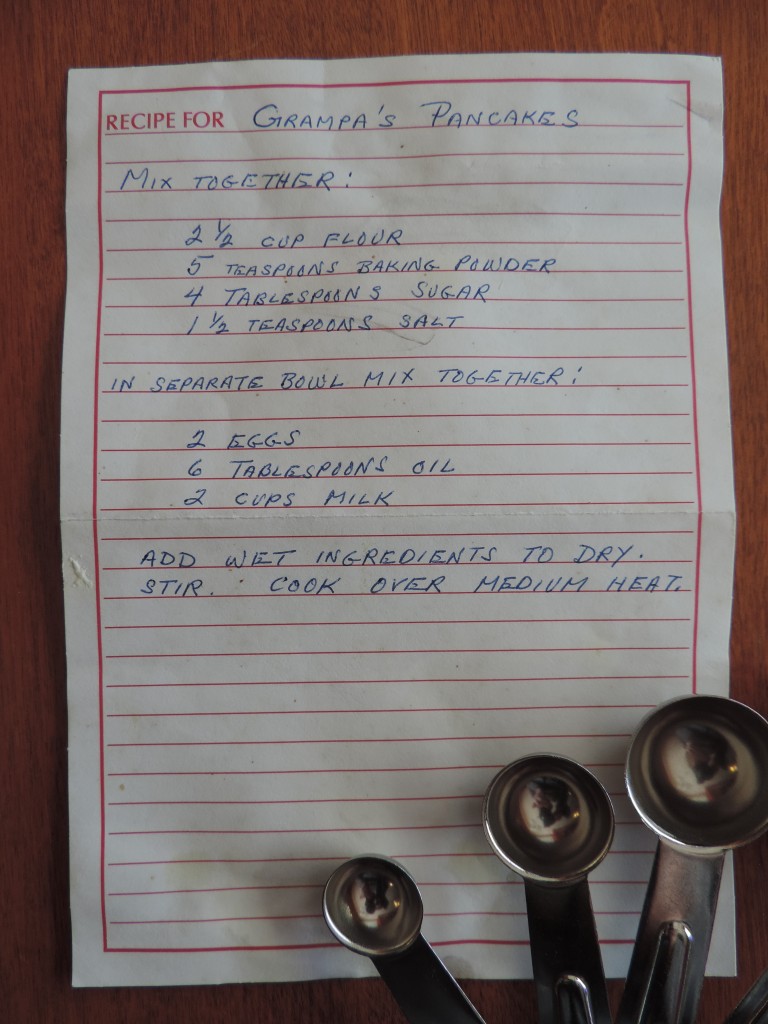 RECIPE FOR GRAMPA'S PANCAKES
MIX TOGETHER:
2 1/2 CUP FLOUR
5 TEASPOONS BAKING POWDER
4 TABLESPOONS SUGAR
1 1/2 TEASPOONS SALT
IN SEPARATE BOWL MIX TOGETHER:
2 EGGS
6 TABLESPOONS OIL
2 CUPS MILK
ADD WET INGREDIENTS TO DRY.
STIR. COOK OVER MEDIUM HEAT.